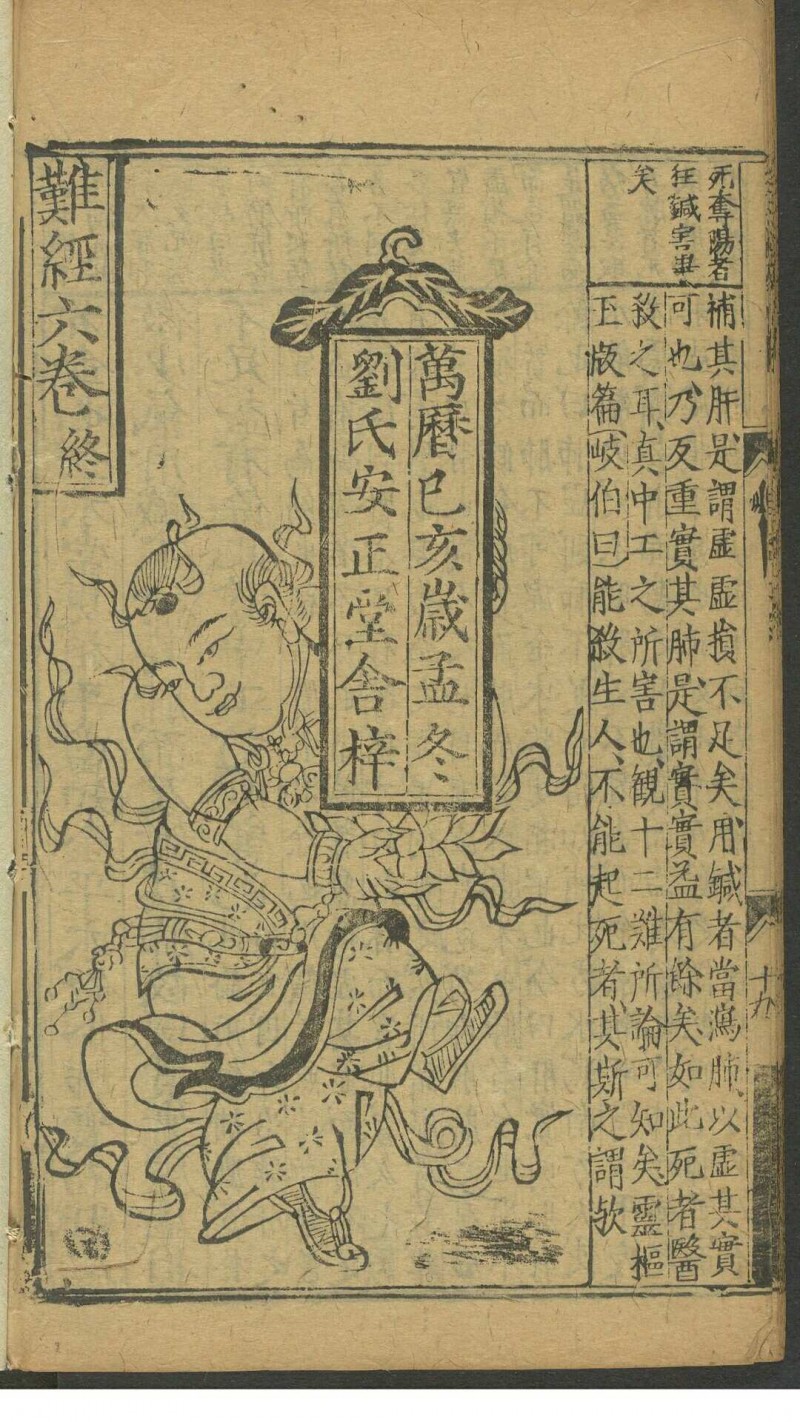 死奪陽者
狂鍼害畢
矣
補其肝是謂虛虛損不足矣用鍼者當瀉肺以虛其實
可也乃反重實其肺是謂實實益有餘矣如此死者醫
殺之耳真中工之所害也観十二難所論可知矣靈樞
玉版篇岐伯曰能殺生人不能起死者其斯之謂歟
萬曆已亥歲孟冬
劉氏安正堂舍梓
難經六卷終
十九